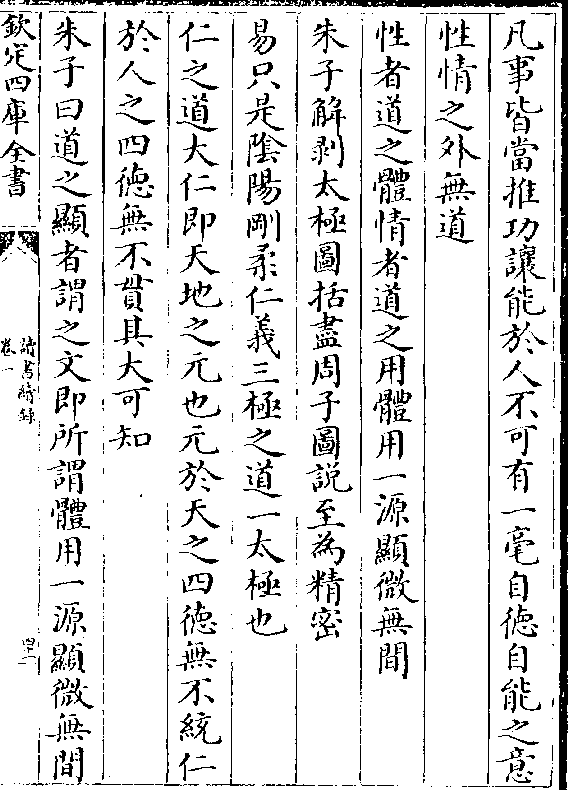 凡事皆當推功讓能於人不可有一毫自徳自能之意
性情之外無道
性者道之體情者道之用體用一源顯微無間
朱子解剥太極圖括盡周子圖説至為精密
易只是隂陽剛柔仁義三極之道一太極也
仁之道大仁即天地之元也元於天之四徳無不統仁
於人之四徳無不貫其大可知
朱子曰道之顯者謂之文即所謂體用一源顯微無間
欽定四庫全書
讀書續録
卷一
四十二